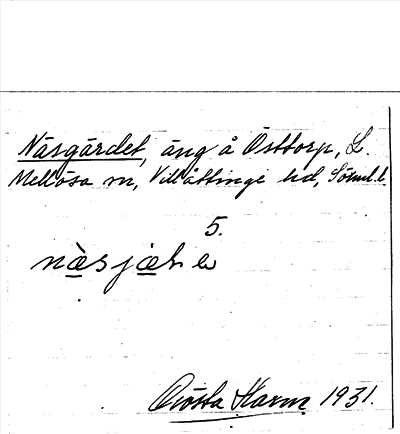 Näsgärdet, äng å Östtorp, L.
Mellösa sn, Villåttinge hd, Söml. l.
5.
näsjæt
Gösta Harm 1931.